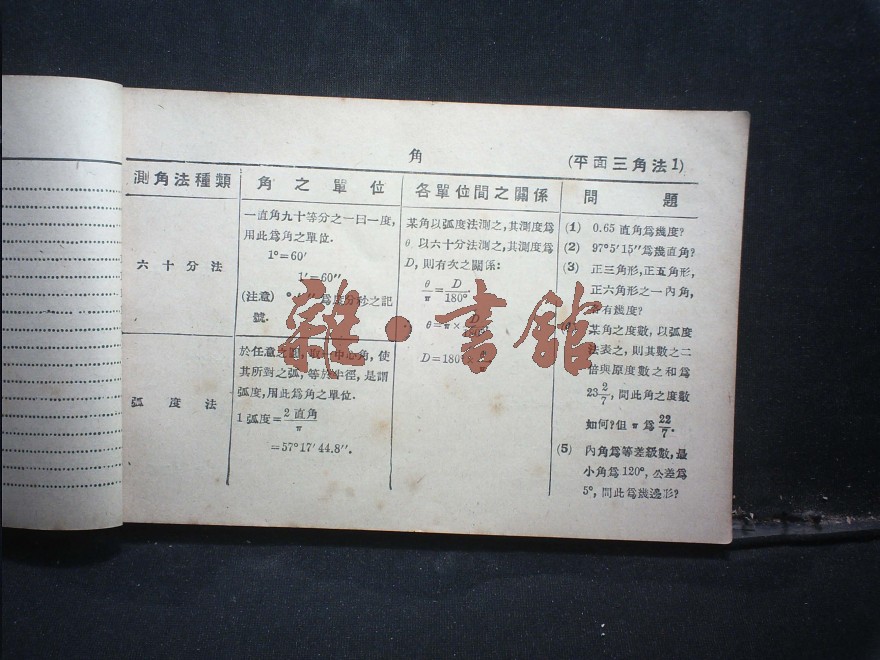 角
(平面三角法1)
測角法種類
角之單位
各單位間之關係
問題
六十分法
一直角九十等分之一曰一度,
用此爲角之單位.
1°=60′
1′=60″
(注意)
爲度分秒之記
號.
某角以弧度法測之,其測度爲
θ 以六十分法測之,其測度爲
D,則有次之關係:
θ/π = D/180°
θ=π×
D=180°×
弧度法
於任意之圓,取中心角,使
其所對之弧,等於半徑,是謂
弧度,用此爲角之單位.
1弧度=2直角/π
=57°17′44.8″.
(1) 0.65 直角爲幾度?
(2) 97°5′15″爲幾直角?
(3) 正三角形,正五角形,
正六角形之一內角,
有幾度?
某角之度數,以弧度
法表之,則其數之二
倍與原度數之和爲
23 2/7,問此角之度數
如何?但 π 爲 22/7.
(5) 內角爲等差級數,最
小角爲120°,公差爲
5°,問此爲幾邊形?
雜·書館